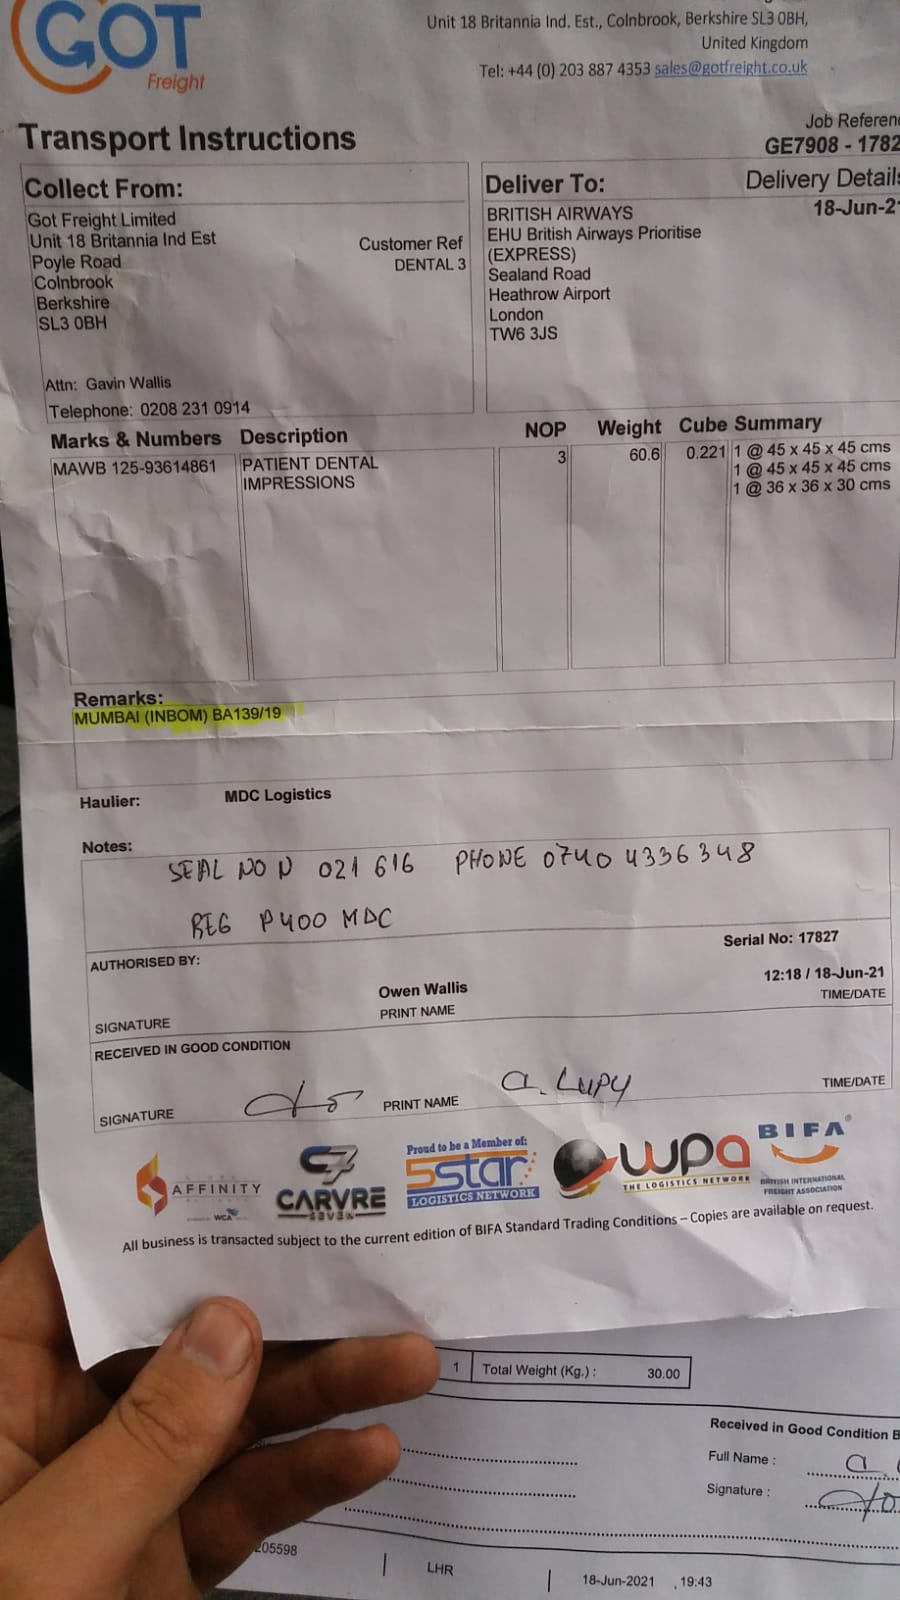 GOT
Freight
Unit 18 Britannia Ind. Est., Colnbrook, Berkshire SL3 0BH,
United Kingdom
Tel: +44 (0) 203 887 4353 sales@gotfreight.co.uk
Transport Instructions
Job Referen
GE7908 - 1782
Collect From:
Got Freight Limited
Unit 18 Britannia Ind Est
Poyle Road
Colnbrook
Berkshire
SL3 0BH
Customer Ref
DENTAL 3
Attn: Gavin Wallis
Telephone: 0208 231 0914
Deliver To:
BRITISH AIRWAYS
EHU British Airways Prioritise
(EXPRESS)
Sealand Road
Heathrow Airport
London
TW6 3JS
Delivery Details
18-Jun-21
Marks & Numbers Description NOP Weight Cube Summary
MAWB 125-93614861 PATIENT DENTAL 3 60.6 0.221 1 @ 45 x 45 x 45 cms
IMPRESSIONS 1 @ 45 x 45 x 45 cms
1 @ 36 x 36 x 30 cms
Remarks:
MUMBAI (INBOM) BA139/19
Haulier: MDC Logistics
Notes:
SEAL NO N 021 616 PHONE 0740 4336348
REG P400 MDC
AUTHORISED BY: Serial No: 17827
Owen Wallis 12:18 / 18-Jun-21
SIGNATURE PRINT NAME TIME/DATE
RECEIVED IN GOOD CONDITION
SIGNATURE PRINT NAME a. LUPY TIME/DATE
AFFINITY
WCA
C7
CARVRE
SEVEN
Proud to be a Member of:
5star
LOGISTICS NETWORK
wpa
THE LOGISTICS NETWORK
BIFA®
BRITISH INTERNATIONAL
FREIGHT ASSOCIATION
All business is transacted subject to the current edition of BIFA Standard Trading Conditions – Copies are available on request.
1 Total Weight (Kg.) : 30.00
Received in Good Condition B
Full Name : a.
Signature :
205598 LHR 18-Jun-2021 , 19:43